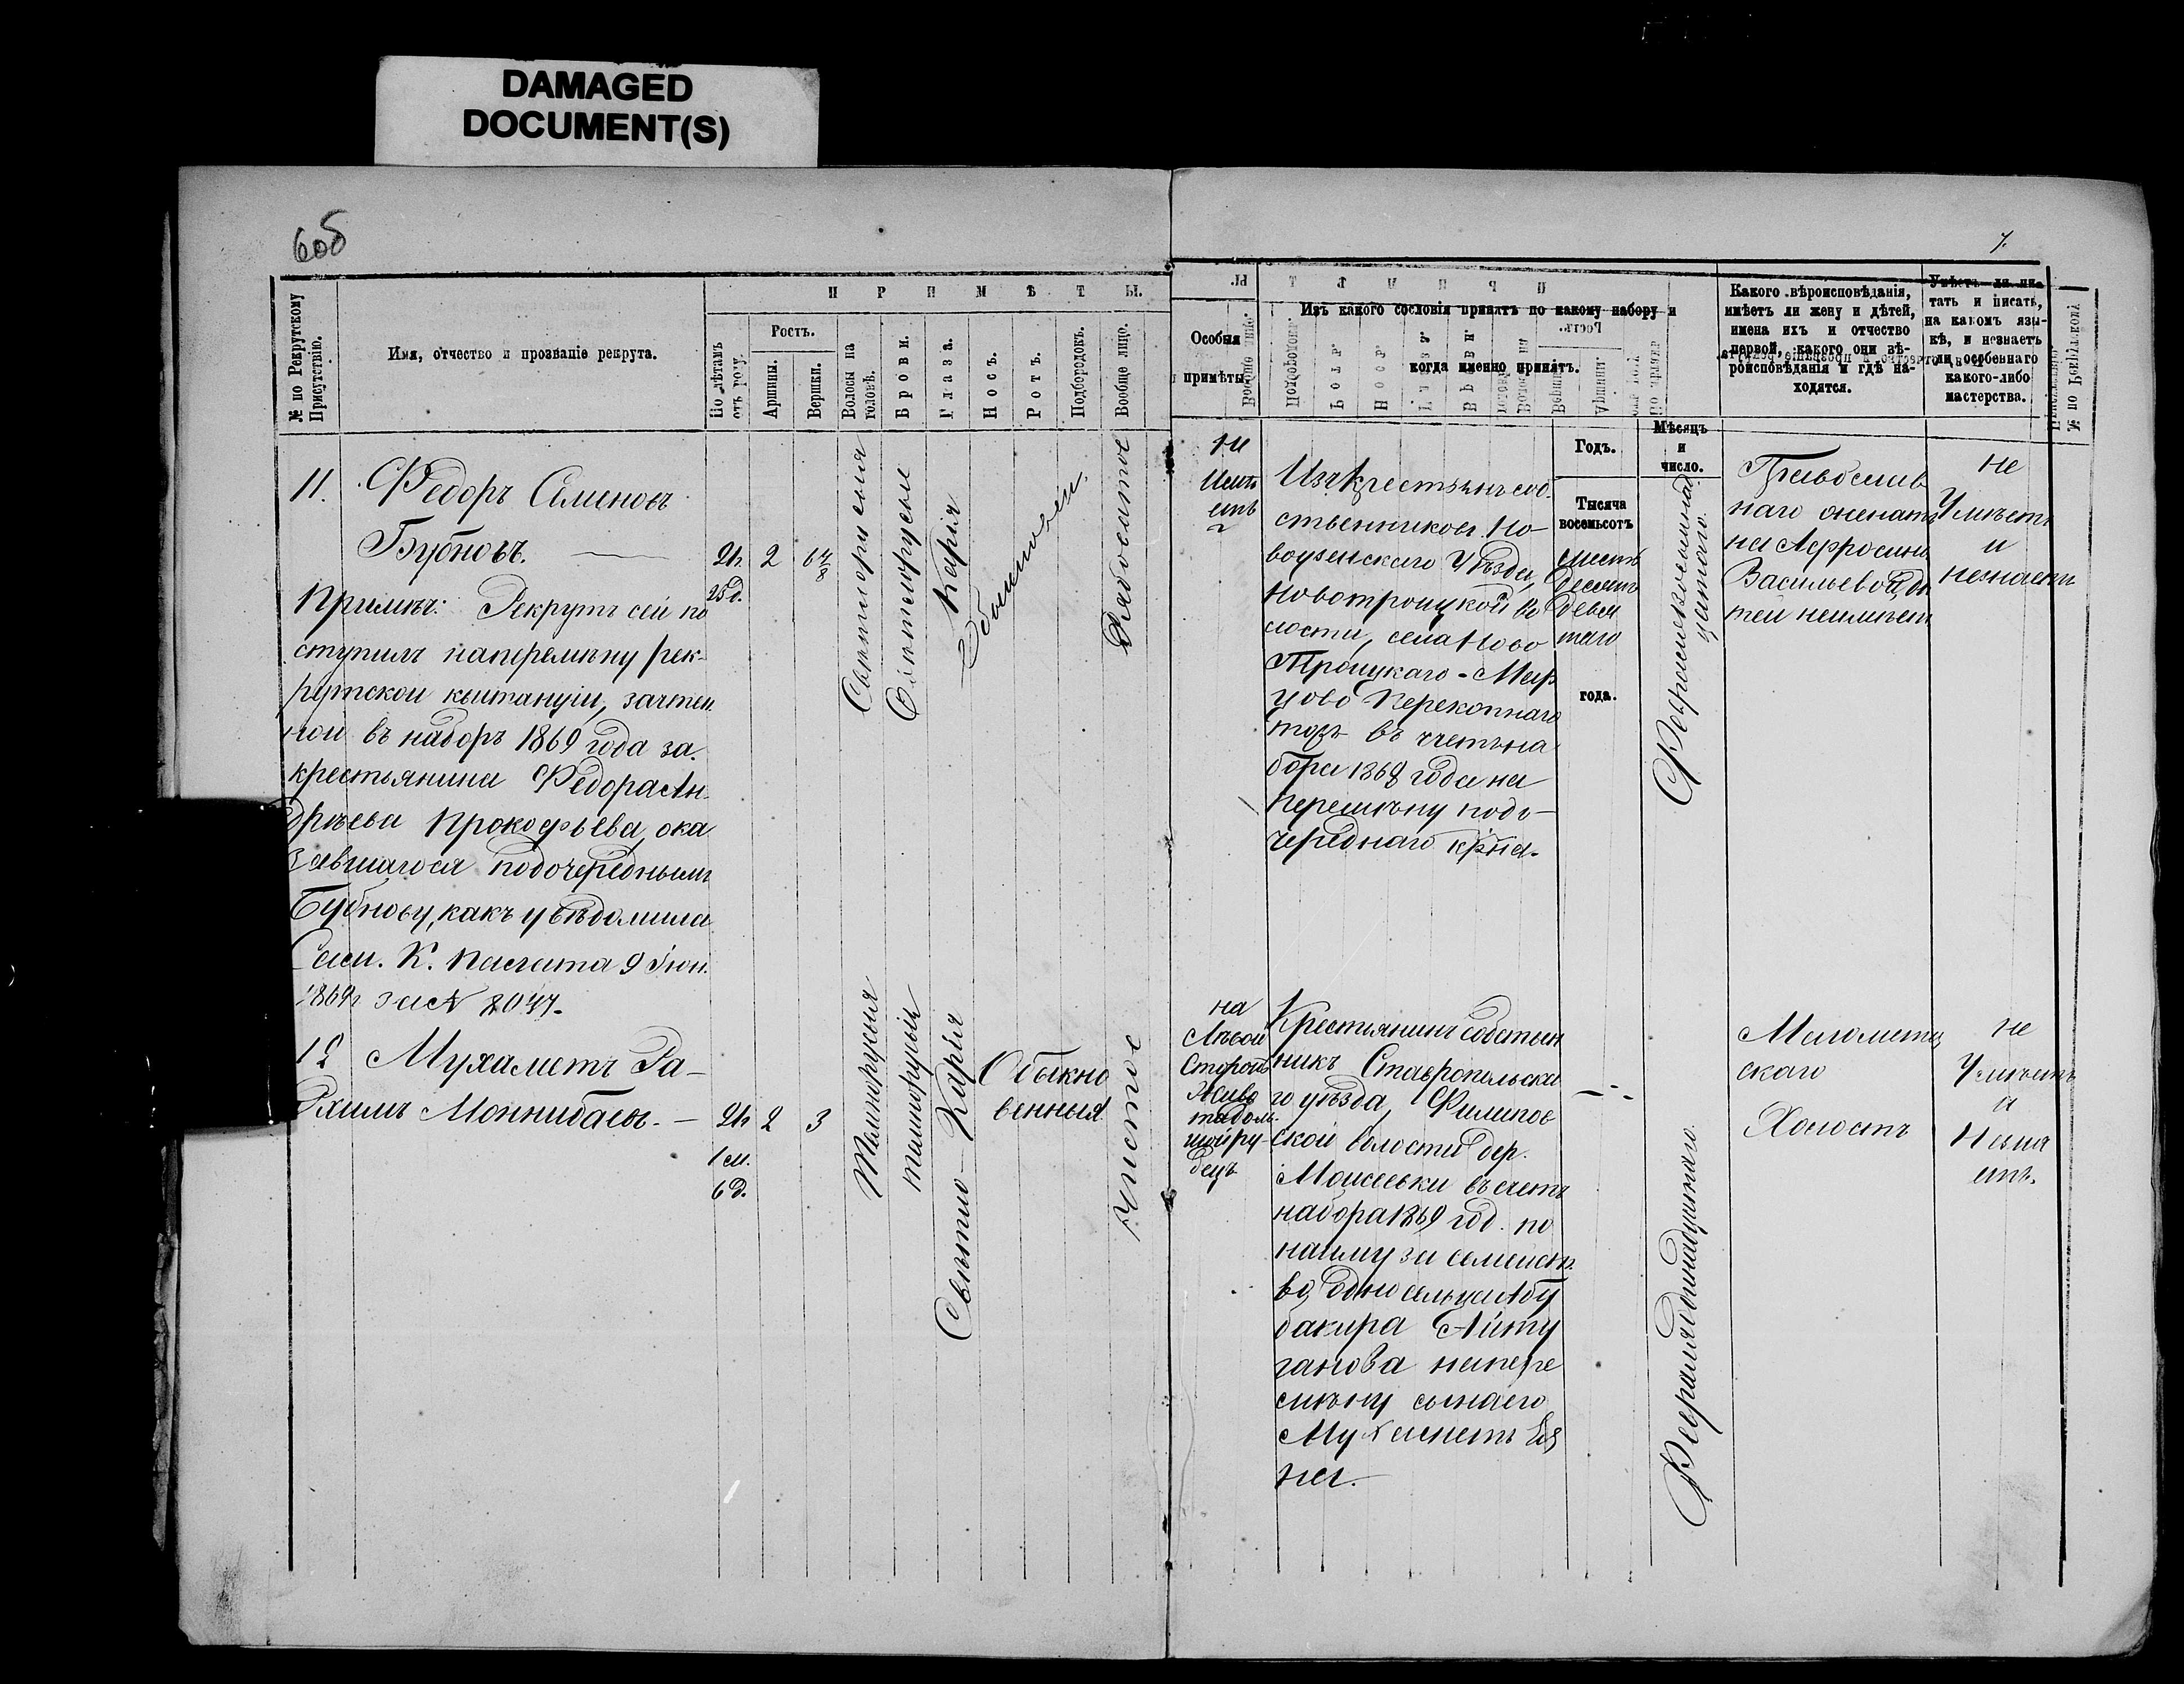 DAMAGED
DOCUMENT(S)
6об
7.
№ по Рекрутскому
Присутствію.
Имя, отчество и прозваніе рекрута.
П Р И М Ѣ Т Ы.
По лѣтамъ
отъ роду.
Ростъ.
Аршины.
Вершки.
Волосы на
головѣ.
Брови.
Глаза.
Носъ.
Ротъ.
Подбородокъ.
Вообще лицо.
Особыя
примѣты.
Изъ какого сословія принятъ по какому набору и
когда именно принятъ.
Годъ.
Мѣсяцъ
и
число.
Какого вѣроисповѣданія,
имѣетъ ли жену и дѣтей,
имена ихъ и отчество
первой, какого они вѣ-
роисповѣданія и гдѣ на-
ходятся.
Умѣетъ ли чи-
тать и писать,
на какомъ язы-
кѣ, и незнаетъ
ли особеннаго
какого-либо
мастерства.
11.
Федоръ Семеновъ
Бубновъ.
Примѣч: Рекрутъ сей по
ступилъ наперемѣну рек-
рутской квитанціи, зачтен
ной въ наборъ 1869 года за
крестьянина Федора Ан-
дрѣева Прокофьева, ока
завшагося подочереднымъ
Бубнову, какъ увѣдомила
К. Палата 9 Іюн.
1869г за №
21г.
25д.
2
6 4/8
Свѣтлорусыя
Свѣтлорусые
Карія
Обыкновен.
Рябоватое
Не
имѣ
етъ
Изъ крестьянъ соб-
ственниковъ Но-
воузенскаго Уѣзда,
Новотроицкой во
лости, села Ново
Троицкаго
Перекопнаго
тожъ въ счетъ на
бора 1868 года на
перемѣну подо-
череднаго кр-на.
Тысяча
восемьсотъ
шесть
десятъ
девя
таго
года.
Февраля восемнад
цатаго.
Православ
наго женатъ
на Афросини
Васильевой, дѣ
тей неимѣетъ
Не
Умѣетъ
и
незнаетъ
12
Мухаметъ Ра-
химъ Моннибаевъ.
21г
1 м.
6 д.
2
3
Темнорусыя
темнорусыя
Свѣтло-Карія
Обыкно
венныя
Чистое
на
Лѣвой
Сторонѣ
Живо
та боль
шой ру-
бецъ
Крестьянинъ собствен
никъ Ставропольска
го уѣзда, Филипов
ской волости дер.
Моисеевки въ счетъ
набора 1869 год. по
найму за семейст
во односельца Абу
бакира Айту
ганова напере
мѣну сына его
Мухаметъ
на.
Февраля одинадцатаго.
Магомета
скаго
Холостъ
не
Умѣетъ
и
Незна
етъ.